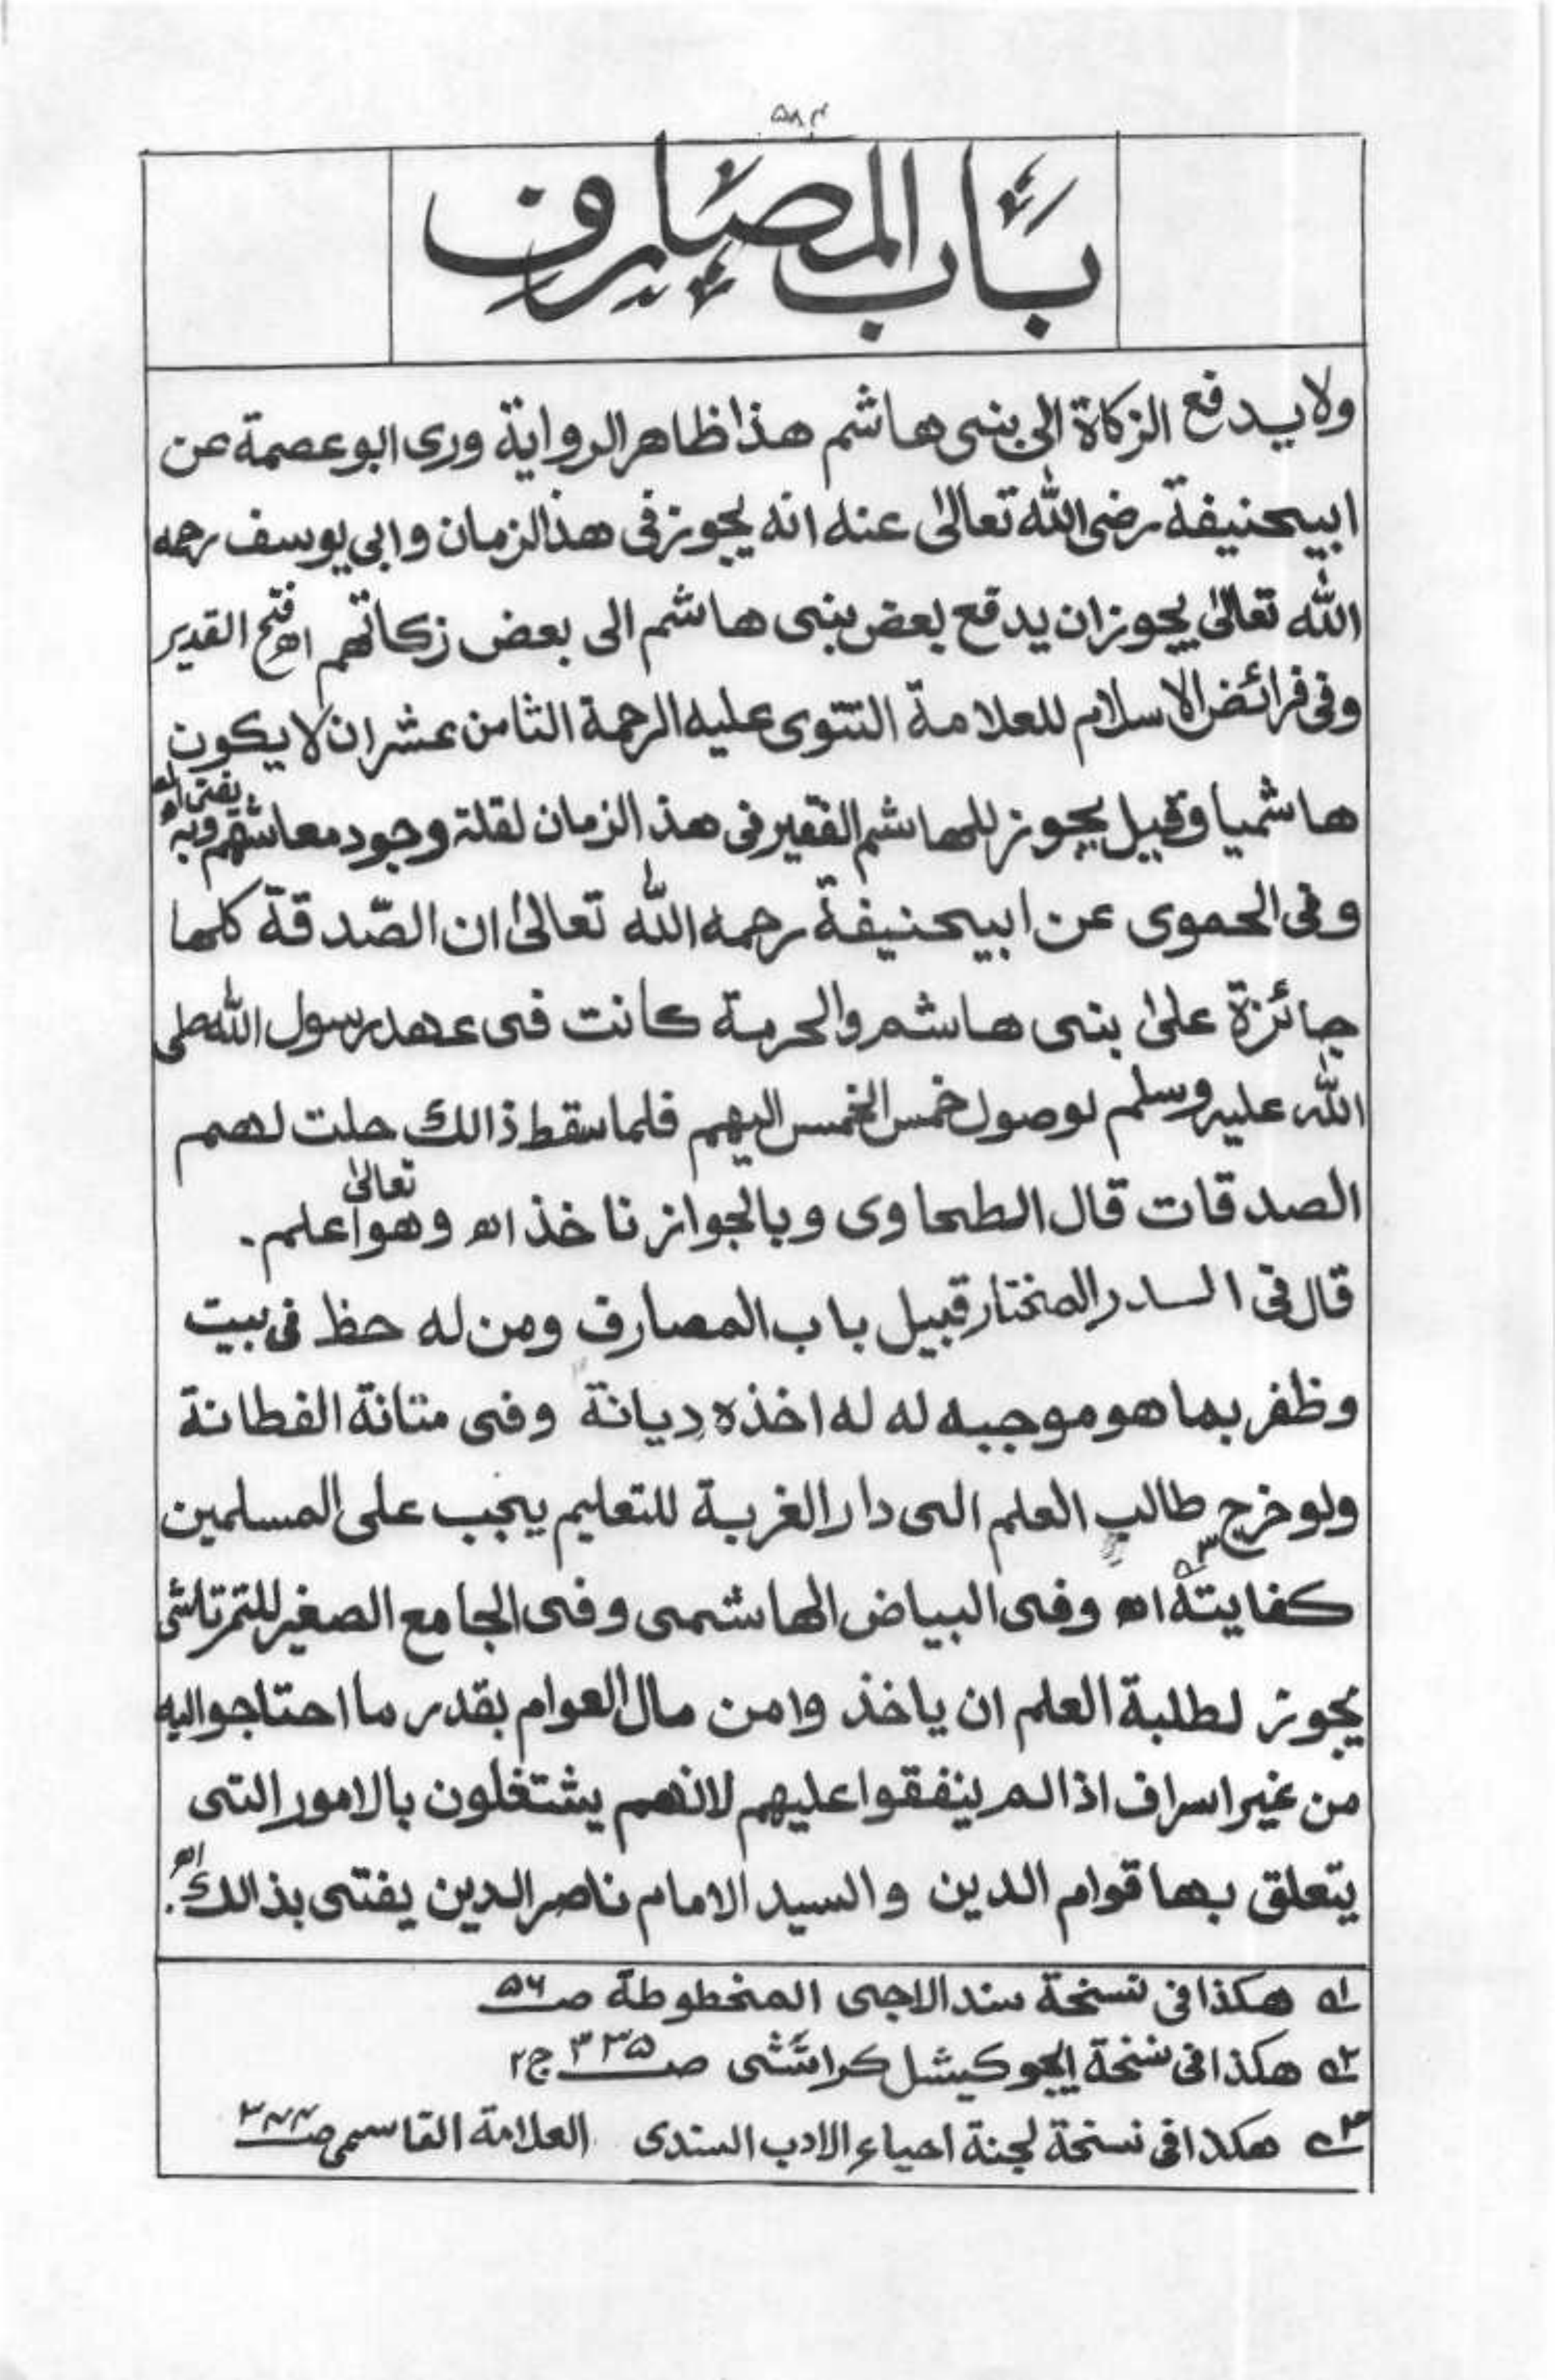 ۵۸۴
باب المصارف
ولا يدفع الزكاة الى بنى هاشم هذا ظاهر الرواية ورى ابو عصمة عن
ابيحنيفة رضى الله تعالىٰ عنه انه يجوز فى هذالزمان وابي يوسف رحمه
الله تعالىٰ يجوز ان يدفع بعض بنى هاشم الى بعض زكاتهم اهـ فتح القدير
وفى فرائض الاسلام للعلامة التتوى عليه الرحمة الثامن عشر ان لا يكون
هاشميا وقيل يجوز للهاشم الفقير فى هذ الزمان لقلة وجود معاشهم وبه يفتى اهـ
وفى الحموى عن ابيحنيفة رحمه الله تعالىٰ ان الصّدقة كلها
جائزة علىٰ بنى هاشم والحرمة كانت فى عهد رسول الله صلى
الله عليه وسلم لوصول خمس الخمس اليهم فلما سقط ذالك حلت لهم
الصدقات قال الطحاوى وبالجواز ناخذ اهـ وهو تعالىٰ اعلم۔
قال فى الدر المختار قبيل باب المصارف ومن له حظ فى بيت
وظفر بما هو موجبه له له اخذه ديانة وفى متانة الفطانة
ولو خرج طالب العلم الى دار الغربة للتعليم يجب على المسلمين
كفايته ۳ اهـ وفى البياض الهاشمى وفى الجامع الصغير للتمرتاشى
يجوز لطلبة العلم ان ياخذ وا من مال العوام بقدر ما احتاجوا اليه
من غير اسراف اذا لم ينفقوا عليهم لانهم يشتغلون بالامور التى
يتعلق بها قوام الدين والسيد الامام ناصر الدين يفتى بذالك اهـ.
۱ هكذا فى نسخة سند الاجى المخطوطة صـ ۵۶
۲ هكذا فى نسخة ايجوكيشل كراتشى صـ ۳۳۵ ج۲
۳ هكذا فى نسخة لجنة احياء الادب السندى العلامة القاسمى صـ